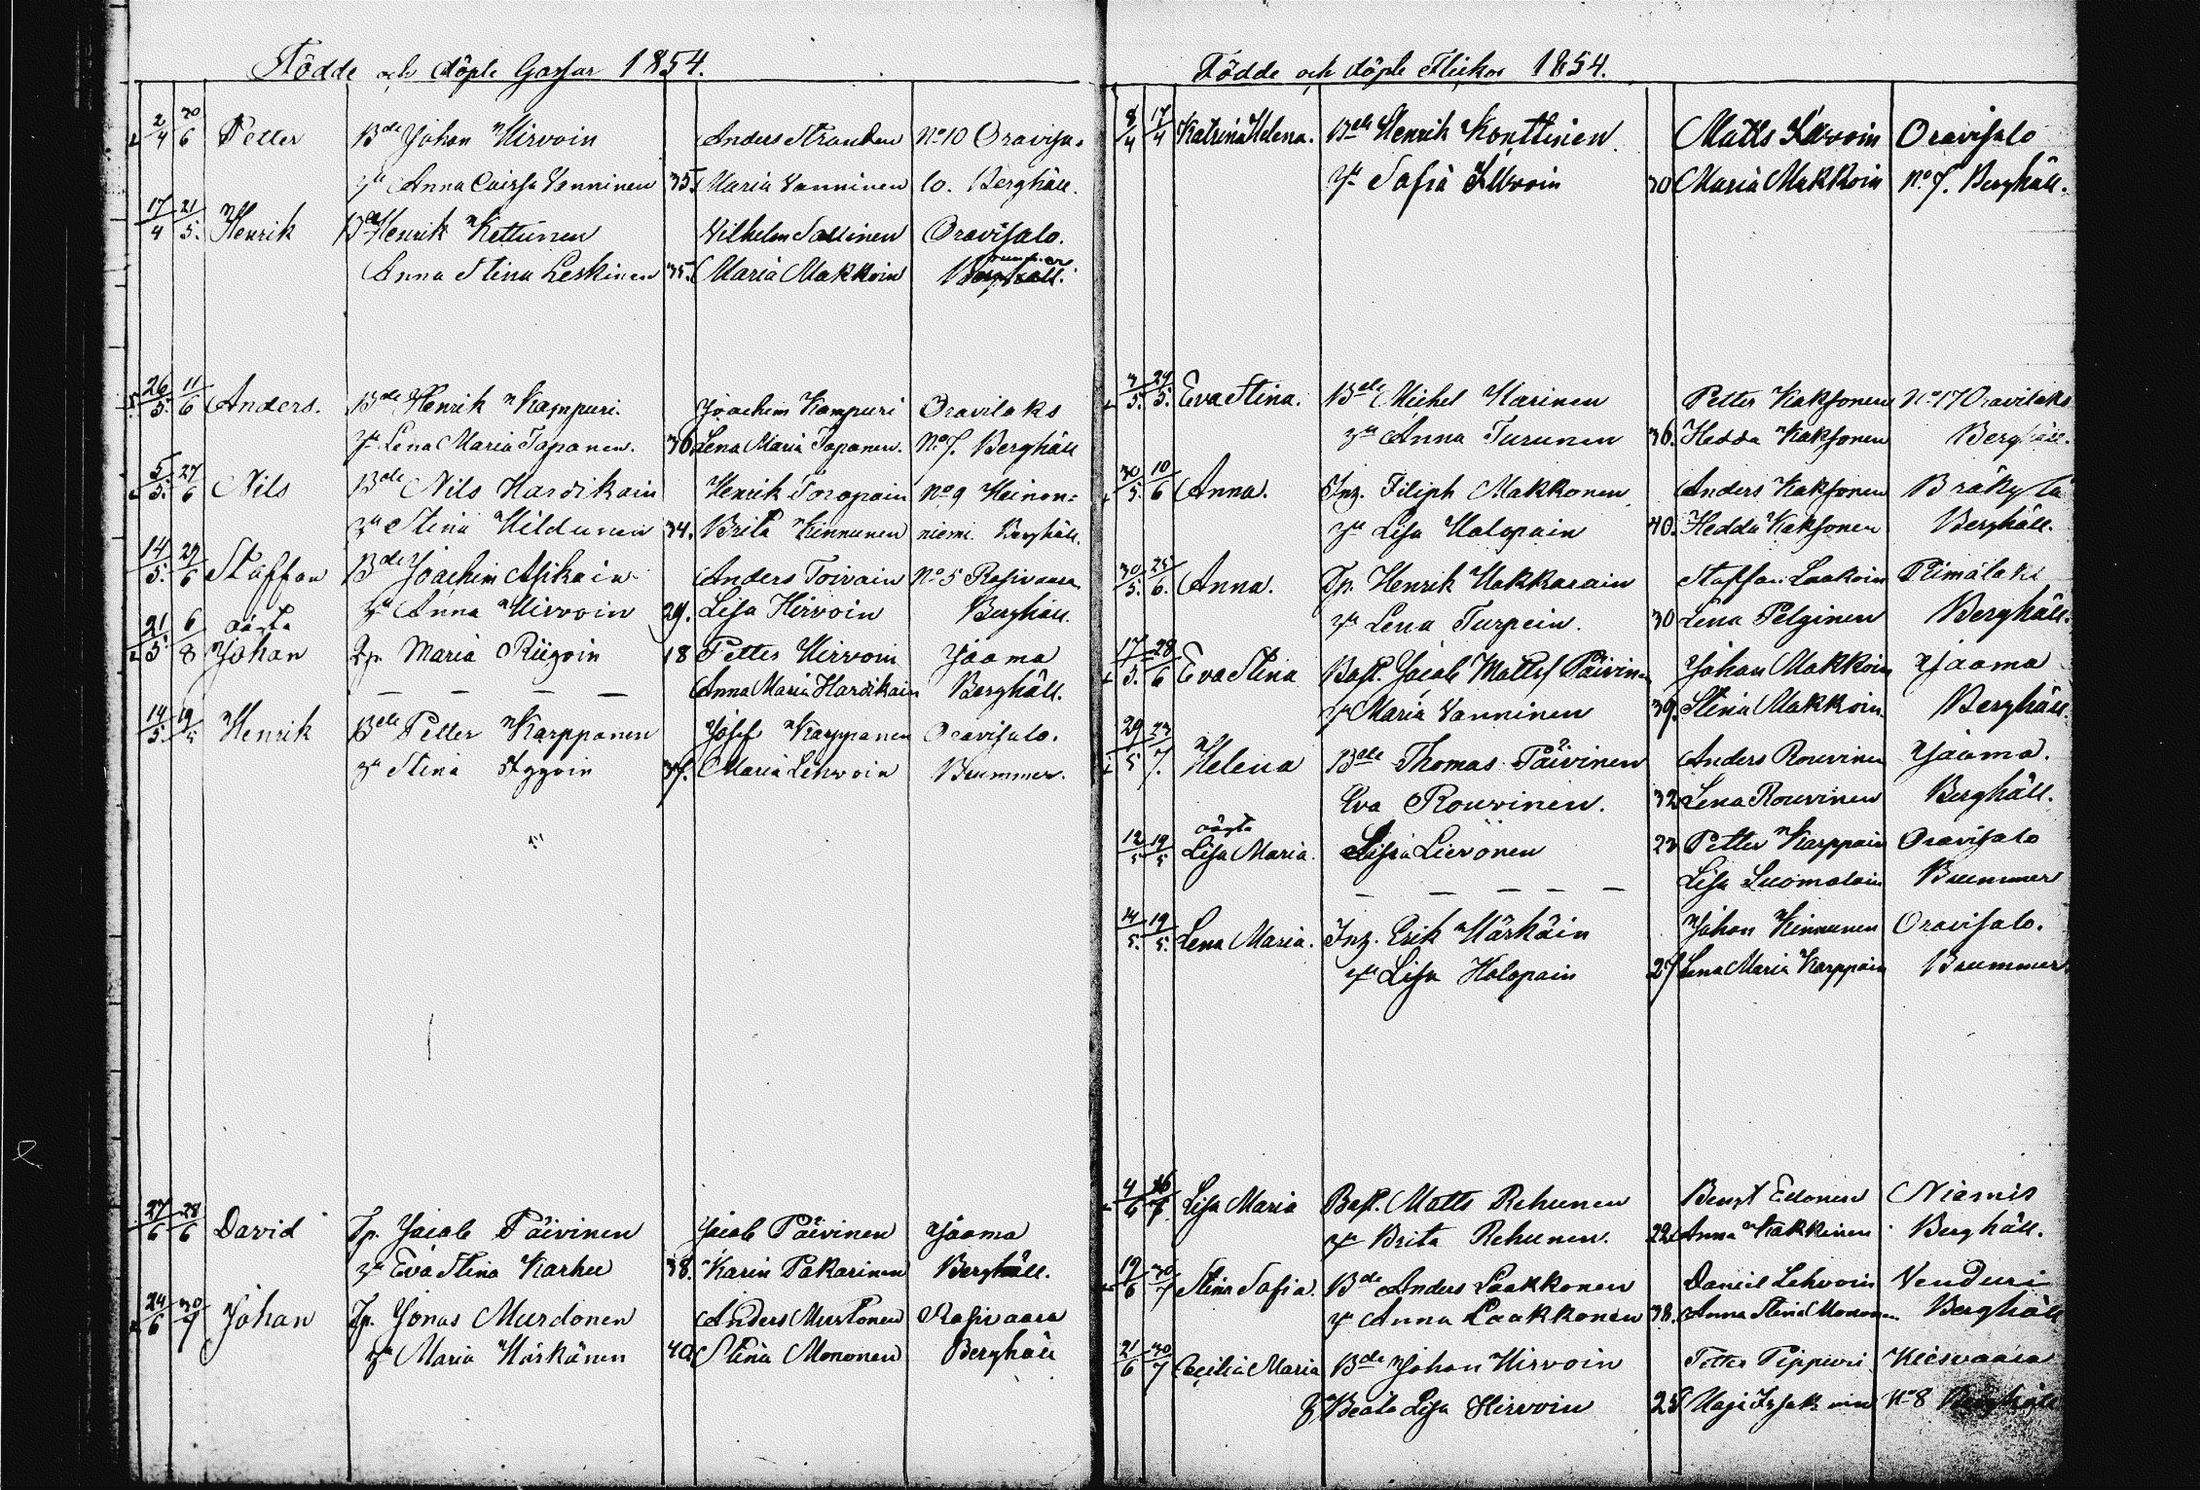 Födde och döpte Gossar 1854.
2/4 30/6 Petter Bde Johan Hirvoin Anders Strauken No 10 Oravisa=
hu Anna Caissa Vanninen 35. Maria Vanninen lo. Berghäll.
17/4 21/5. Henrik Bde Henrik Kettunen Vilhelm Sallinen Oravisalo.
Anna Stina Leskinen 35. Maria Makkoin Brummer
26/5. 11/6 Anders. Bde Henrik Kampuri. Joachim Kampuri Oravilaks
hu Lena Maria Toponen. 36 Lena Maria Toponen. No 7. Berghäll
5/5. 27/6 Nils Bde Nils Hardikain Henrik Toropain No 9 Heinon=
hu Stina Hildunen 34. Brita Kinnunen niemi Berghäll.
14/5. 29/6 Staffan Bde Joachim Asikain Anders Toivain No 5 Rasivaara
hu Anna Hirvoin 29. Lisa Hirvoin Berghäll.
21/5. 6/8 oäkta Johan Lp. Maria Riigoin 18 Petter Hirvoin Jaama
— — — — Anna Maria Hardikain Berghäll.
14/5. 19/5 Henrik Bde Petter Karppanen Josef Karppanen Oravisalo.
hu Stina Iggoin 37. Maria Lehvoin Brummer.
27/6 28/6 David Tp. Jacob Päivinen Jacob Päivinen Jaama
hu Eva Stina Karhu 38. Karin Pakarinen Berghäll.
24/6 30/7 Johan Tp. Jonas Murdonen Anders Murtonen Rasivaara
hu Maria Härkänen 40. Stina Mononen Berghäll
Födde och döpte Flickor 1854.
8/4 17/4 Katrina Helena. Bde Henrik Konttinen Matts Oravisalo
hu Sofia 30 Maria Makkoin No 7. Berghäll.
7/5. 29/5. Eva Stina. Bde Michel Harinen Petter Kaksonen No 17 Oravilaks
hu Anna Turunen 36. Hedda Kaksonen Berghäll.
30/5. 10/6 Anna. Inh. Filiph Makkonen Anders Kaksonen Bräkylä
hu Lisa Holopain 40. Hedda Kaksonen Berghäll.
30/5. 25/6. Anna. Tp. Henrik Hakkarain Staffan Laakoin Piimälaks
hu Lena Turpein. 30 Lena Pelginen Berghäll.
17/5. 28/6 Eva Stina Bost. Jacob Mattss Päivinen Johan Makkoin Jaama
hu Maria Vanninen 39. Stina Makkoin Berghäll.
29/5 23/7. Helena Bde Thomas Päivinen Anders Rouvinen Jaama.
Eva Rouvinen. 32 Lena Rouvinen Berghäll.
12/5 19/5 oäkta Lisa Maria. Lisa Lievonen 23 Petter Karppain Oravisalo
— — — — — Lisa Suomalain Brummer
14/5. 19/5. Lena Maria. Inh. Erik Härkäin Johan Kinnunen Oravisalo.
hu Lisa Holopain 27 Lena Maria Karppain Brummer
4/6 16/7. Lisa Maria Bost. Matts Rehunen Bengt Eronen Niemis
hu Brita Rehunen. 22 Anna Kakkinen Berghäll.
19/6 30/7 Stina Sofia. Bde Anders Laakkonen Daniel Lehvoin Venduri
hu Anna Laakkonen 38. Anna Stina Mononen Berghäll
21/6 30/7 Cecilia Maria Bde Johan Hirvoin Petter Pippuri Kiesvaara
hu Beata Lisa Hirvoin 25 No 8 Berghäll